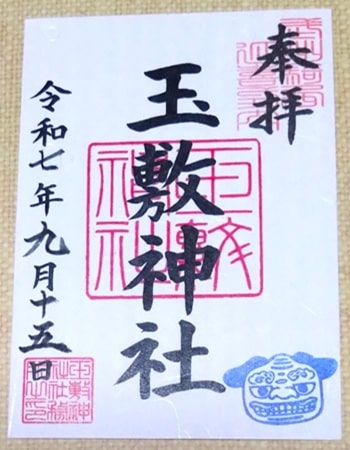 奉拝
玉敷神社
令和七年九月十五日
玉敷神社
玉敷神社社務之印